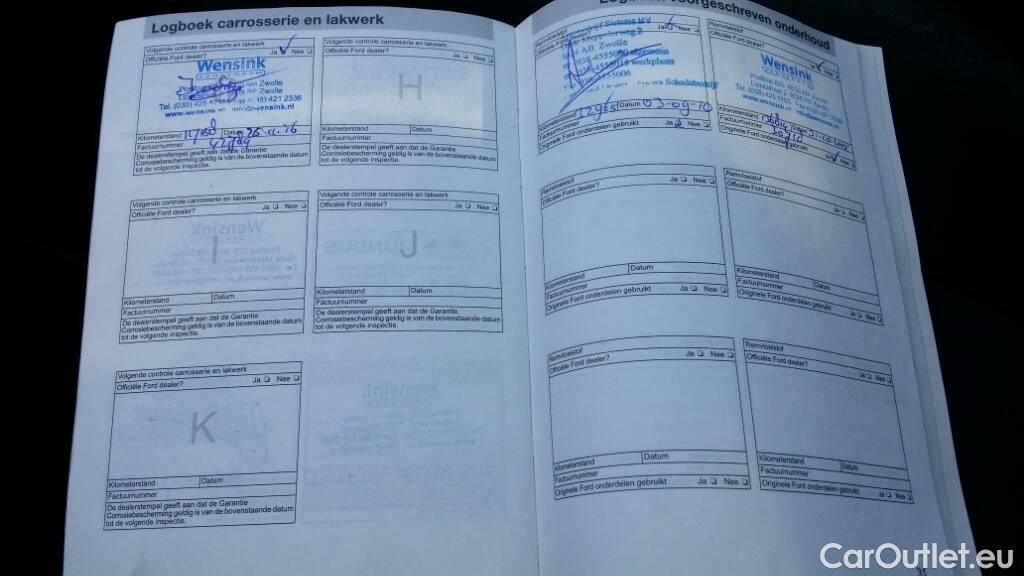 Logboek carrosserie en lakwerk
Volgende controle carrosserie en lakwerk
Officiële Ford dealer? Ja ✓ Nee ❏
Wensink
Zwolle
Zwolle
Tel. (038) 425
421 2336
www.wensink.nl
wensink.nl
Kilometerstand Datum
Factuurnummer
De dealerstempel geeft aan dat de Garantie
Corrosiebescherming geldig is van de bovenstaande datum
tot de volgende inspectie.
Volgende controle carrosserie en lakwerk
Officiële Ford dealer? Ja ❏ Nee ❏
H
Kilometerstand Datum
Factuurnummer
De dealerstempel geeft aan dat de Garantie
Corrosiebescherming geldig is van de bovenstaande datum
tot de volgende inspectie.
Volgende controle carrosserie en lakwerk
Officiële Ford dealer? Ja ❏ Nee ❏
I
Kilometerstand Datum
Factuurnummer
De dealerstempel geeft aan dat de Garantie
Corrosiebescherming geldig is van de bovenstaande datum
tot de volgende inspectie.
Volgende controle carrosserie en lakwerk
Officiële Ford dealer? Ja ❏ Nee ❏
J
Kilometerstand Datum
Factuurnummer
De dealerstempel geeft aan dat de Garantie
Corrosiebescherming geldig is van de bovenstaande datum
tot de volgende inspectie.
Volgende controle carrosserie en lakwerk
Officiële Ford dealer? Ja ❏ Nee ❏
K
Kilometerstand Datum
Factuurnummer
De dealerstempel geeft aan dat de Garantie
Corrosiebescherming geldig is van de bovenstaande datum
tot de volgende inspectie.
voorgeschreven onderhoud
Remvloeistof
Ja Nee ❏
AB Zwolle
038-4555000
werkplaats
Schadebedrijf
Kilometerstand Datum 03-09-10
Factuurnummer
Originele Ford onderdelen gebruikt Ja Nee ❏
Remvloeistof
Officiële Ford dealer?
Wensink
www.wensink.nl
Kilometerstand Datum
Factuurnummer
Originele Ford onderdelen gebruikt
Remvloeistof
Officiële Ford dealer? Ja ❏ Nee ❏
Kilometerstand Datum
Factuurnummer
Originele Ford onderdelen gebruikt Ja ❏ Nee ❏
Remvloeistof
Officiële Ford dealer? Ja ❏ Nee ❏
Kilometerstand Datum
Factuurnummer
Originele Ford onderdelen gebruikt Ja ❏ Nee ❏
Remvloeistof
Officiële Ford dealer? Ja ❏ Nee ❏
Kilometerstand Datum
Factuurnummer
Originele Ford onderdelen gebruikt Ja ❏ Nee ❏
Remvloeistof
Officiële Ford dealer? Ja ❏ Nee ❏
Kilometerstand Datum
Factuurnummer
Originele Ford onderdelen gebruikt Ja ❏ Nee ❏
CarOutlet.eu